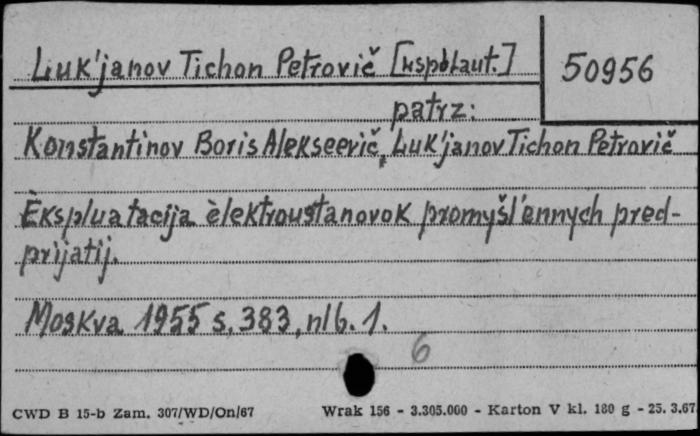 Luk'janov Tichon Petrovič [współaut.]
50956
patrz:
Konstantinov Boris Alekseevič, Luk'janov Tichon Petrovič
Èkspluatacija èlektroustanovok promyšl'ennych pred-
prijatij.
Moskva 1955 s. 383, nlb. 1.
6
CWD B 15-b Zam. 307/WD/On/67
Wrak 156 - 3.305.000 - Karton V kl. 180 g - 25. 3.67